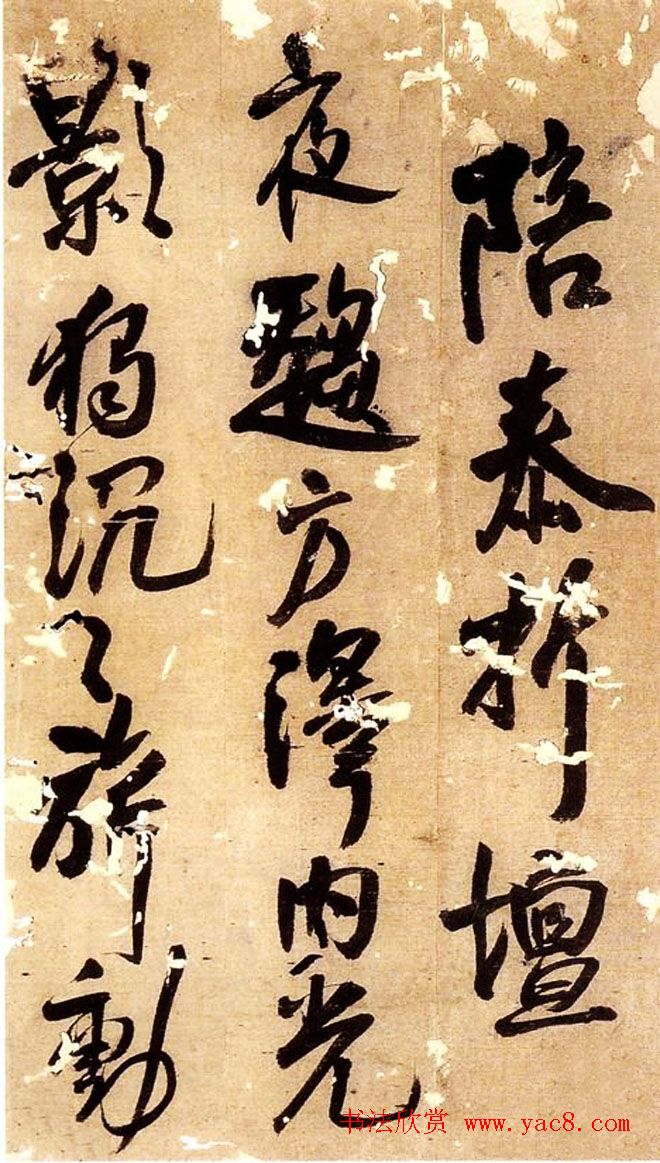 陪泰折壇
夜趨方澤內光
影獨沉々旂動
书法欣赏 www.yac8.com